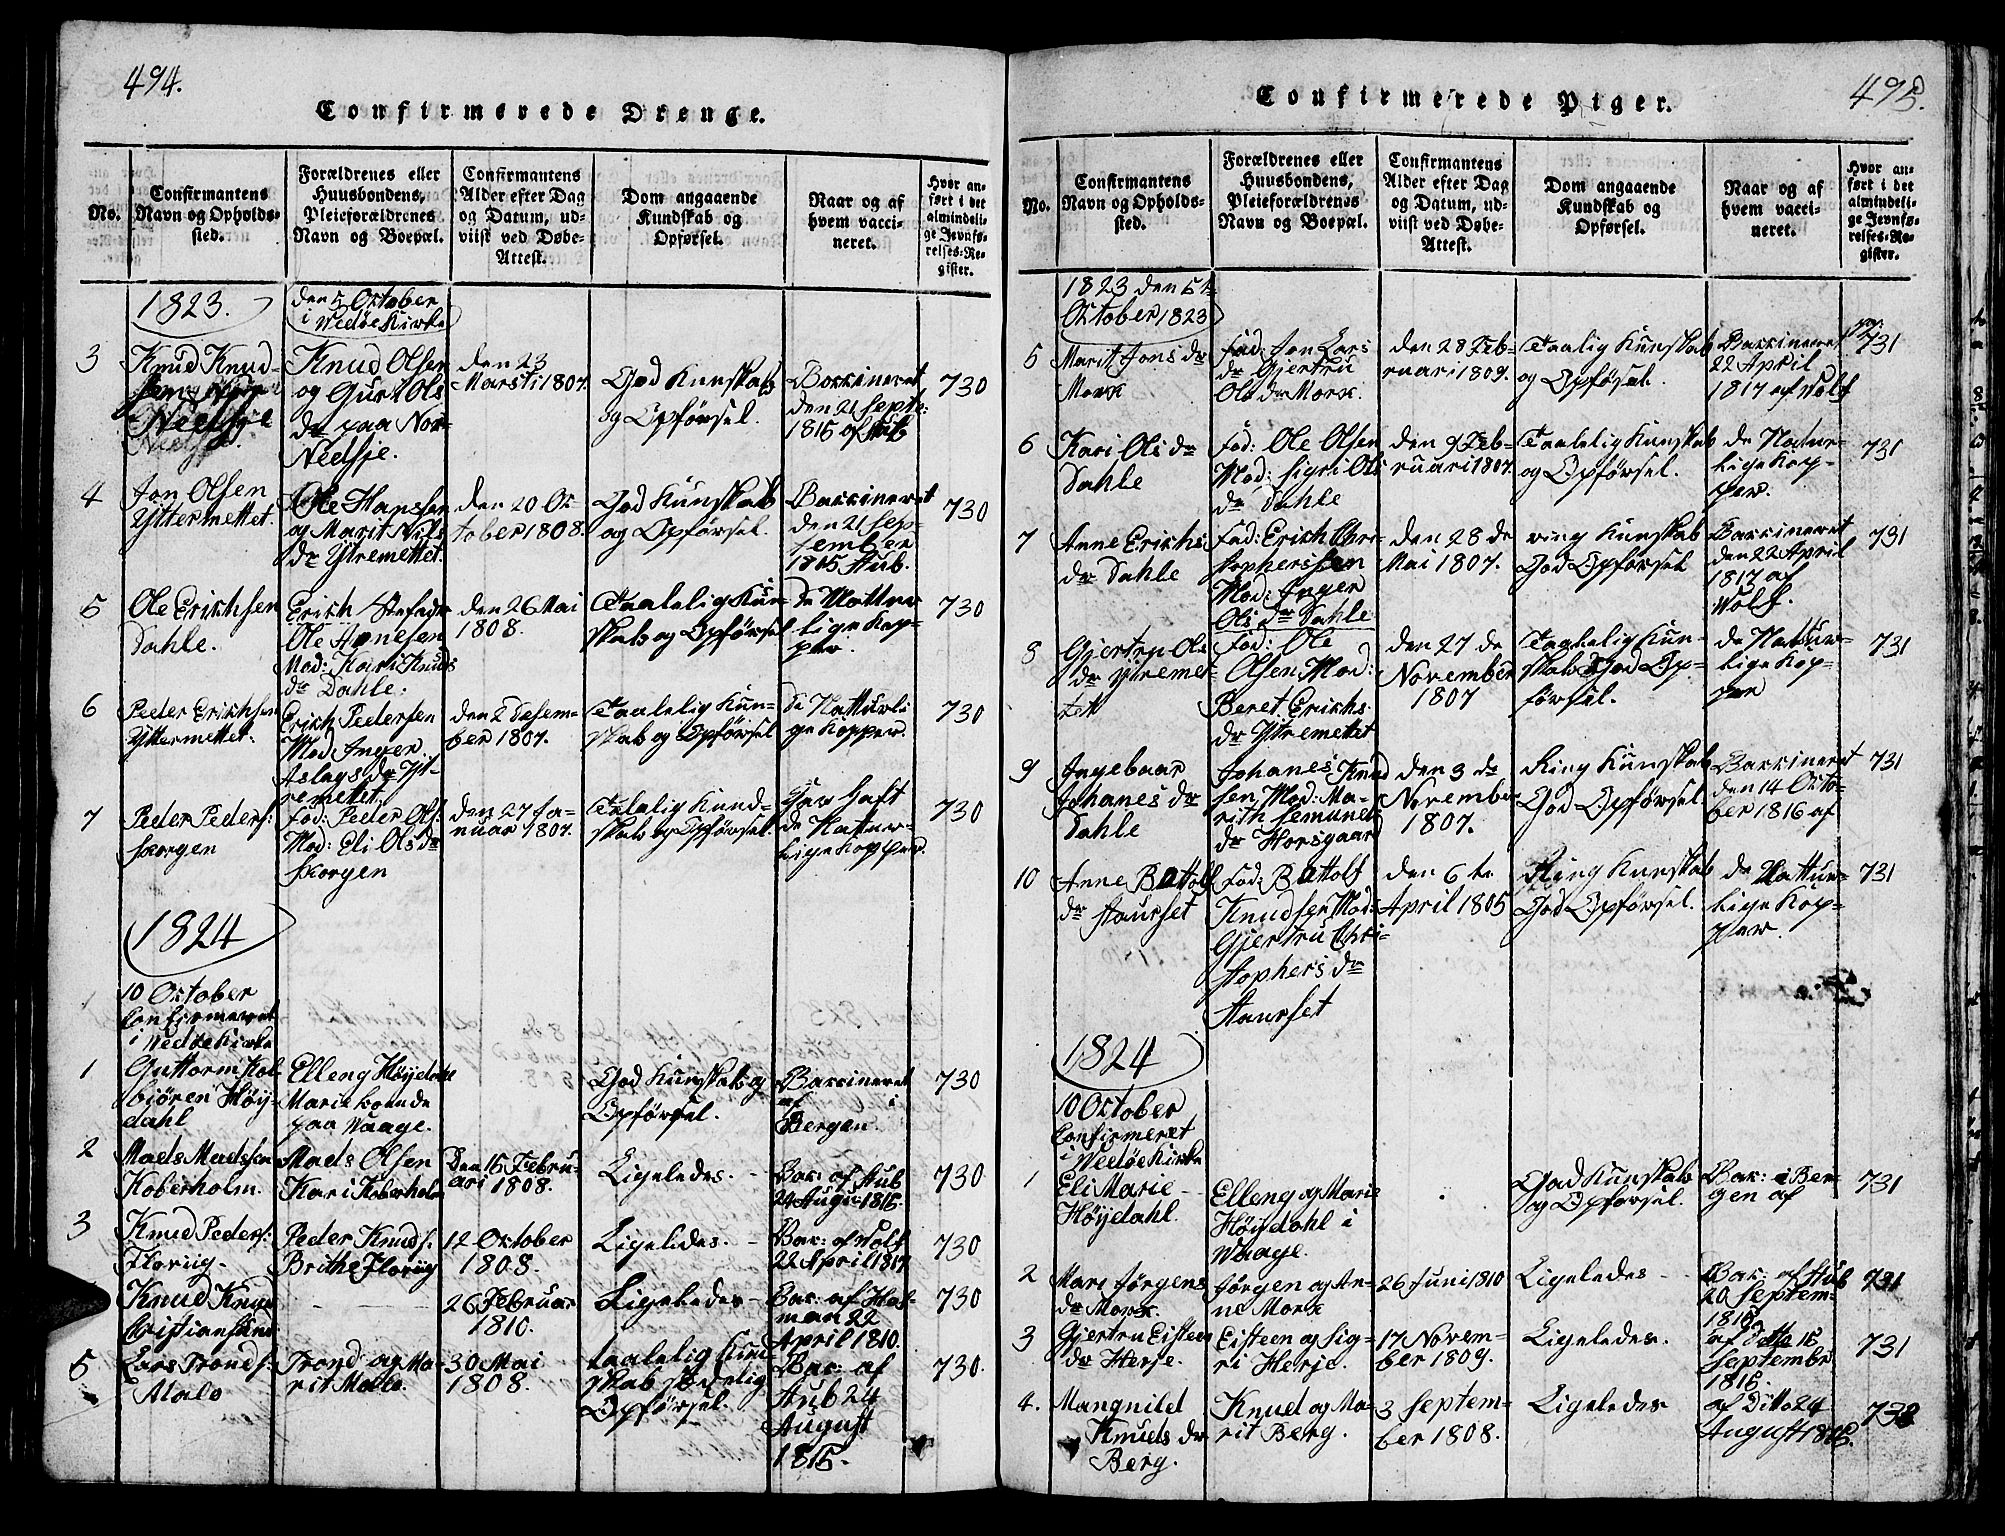 494.
Confirmerede Drenge.
No.
Confirmantens
Navn og Opholds-
sted.
Forældrenes eller
Huusbondens,
Pleieforældrenes
Navn og Boepæl.
Confirmantens
Alder efter Dag
og Datum, ud-
viist ved Døbe-
Attest.
Dom angaaende
Kundskab og
Opførsel.
Naar og af
hvem vacci-
neret.
Hvor an-
ført i det
almindeli-
ge Jevnfø-
relses-Re-
gister.
1823.
den 5 October
i Wedøe Kirke
3
Knud Knud-
sen
Nedsje
Knud Olsen
og Guri Ols
dr paa Nor
Nedsje.
den 23
Marsti 1807.
God Kunskab
og Opførsel.
Vaxineret
den 21 Septe:
1815 af Hub
730
4
Jon Olsen
Yttermettet.
Ole Hansen
og Marit Nils
dr Ytremettet.
den 20 Oc
tober 1808.
God Kunskab
og Opførsel.
Vaxineret
den 21 Sep-
tember
1815 Hub.
730
5
Ole Erichsen
Dahle.
Erich Stefadr
Ole Arnesen
Mod: Kari Knuds
dr Dahle.
den 26 Mai
1808.
Taalelig Kun-
skab og Opførsel
de Nattur
lige Kop-
per.
730
6
Peder Erichsen
Yttermettet.
Erich Pedersen
Mod Inger
Aslags dr Yt-
remettet
den 2 Desem-
ber 1807.
Taalelig Kun-
skab og Opførsel
de Natturli
ge Kopper.
730
7
Peder Peders:
Skorgen
Fad: Peder Ols:
Mod: Eli Ols dr
Skorgen
den 27 Ja-
nuar 1807.
Talelig Kund-
skab og Opførsel.
Har Haft
de Nattur-
lige Kopper.
730
1824
10 October
Confirmeret
i Wedøe Kirke
1
Guttorm Kol
biören Höy-
dahl
Elleng Höydahl
Marie boende
paa Waage.
God Kunskab og
Opførsel.
Vaxineret
af i
Bergen.
730
2
Mads Madssen
Koberholm.
Mads Olsen
Kari Koberholm
Den 15 Febru-
ari 1808.
Ligeledes.
Vac: af Hub
24 Augu: 1815.
730
3
Knud Peders:
Floriig.
Peder Knuds:
Brithe Floriig
12 October
1808.
Ligeledes.
Vac: af Wolf
22 April 1817
730
Knud Knud
Cristiansund
26 Februar
1810.
Ligeledes
Vac: af Hol-
man 22
April 1810.
730
5
Lars Tronds:
Malo
Trond og Ma-
rit Malo.
30 Mai
1808.
taalelig Kund
skab sødelig
Opførsel.
Vac: af
Hub 24
August
1815.
730.
495.
Confirmerede Piger.
No.
Confirmantens
Navn og Opholds-
sted.
Forældrenes eller
Huusbondens,
Pleieforældrenes
Navn og Boepæl.
Confirmantens
Alder efter Dag
og Datum, ud-
viist ved Døbe-
Attest.
Dom angaaende
Kundskab og
Opførsel.
Naar og af
hvem vacci-
neret.
Hvor an-
ført i det
almindeli-
ge Jevnfø-
relses-Re-
gister.
1823 den 5te
October 1823
5
Marit Jons dr
Morx
Fad: Jon Lars
dr Gjertru
Ols dr Morx.
den 28 Feb-
ruari 1809.
Taalig Kunskab
og Opførsel.
Vaxineret
22 April
1817 af Wolf
pag:
731
6
Kari Ols dr
Dahle
Fad: Ole Olsen
Mod: Sigri Ols
dr Dahle
den 9 Feb-
ruari 1807.
Taalelig Kunskab
og Opførsel.
de Natur-
lige Kop-
per.
731
7
Anne Erichs
dr Dahle
Fad: Erich Chri-
stophersen
Mod: Inger
Ols dr Dahle
den 28 de
Mai 1807.
ring Kunskab
God Opførsel
Vaxineret
den 22 April
1817 af
Wolf.
731
8
Gjertru Ols
dr Ytremet-
tet
Fad: Ole
Olsen Mod:
Beret Erichs
dr Ytremettet
den 27 de
November
1807
Taalelig Kun-
skab God Op-
førsel.
de Nattur-
lige Kop-
per
731
9
Ingebaar
Johanes dr
Dahle
Johanes Knud
sen, Mod: Ma-
rith Semunds
dr Horsgaard
den 3 de
November
1807.
Ring Kunskab
God Opførsel.
Vaxineret
den 14 Octo-
ber 1816 af
731
10
Anne Bottolf
dr Staurset
Fad: Bottolf
Knudsen Mod:
Gjertru Chri-
stophers dr
Staurset
den 6 te
April 1805
Ring Kunskab
God Opførsel.
de Nattur-
lige Kop-
per.
731
1824
10 October
Confirmeret
i Wedøe Kirke
1
Eli Marie
Höydahl.
Elleng og Marie
Höydahl i
Waage.
God Kunskab
og Opførsel.
Vac: i Ber-
gen af
731
2
Mari Jørgens
dr Morx.
Jørgen og An-
ne Morx
26 Juni 1810
Ligeledes
Vac: af Hub
20 Septem-
1815
731
3
Gjertru Eisteen
dr Herje.
Eisteen og Sig-
ri Herje.
17 Novem-
ber 1809.
Ligeledes.
af ditto 15
Septembr
1815.
731
4.
Mangnild
Knuds dr
Berg.
Knud og Ma-
rit Berg.
3 Septem-
ber 1808.
Ligeledes
af Ditto 24
August 1815.
732